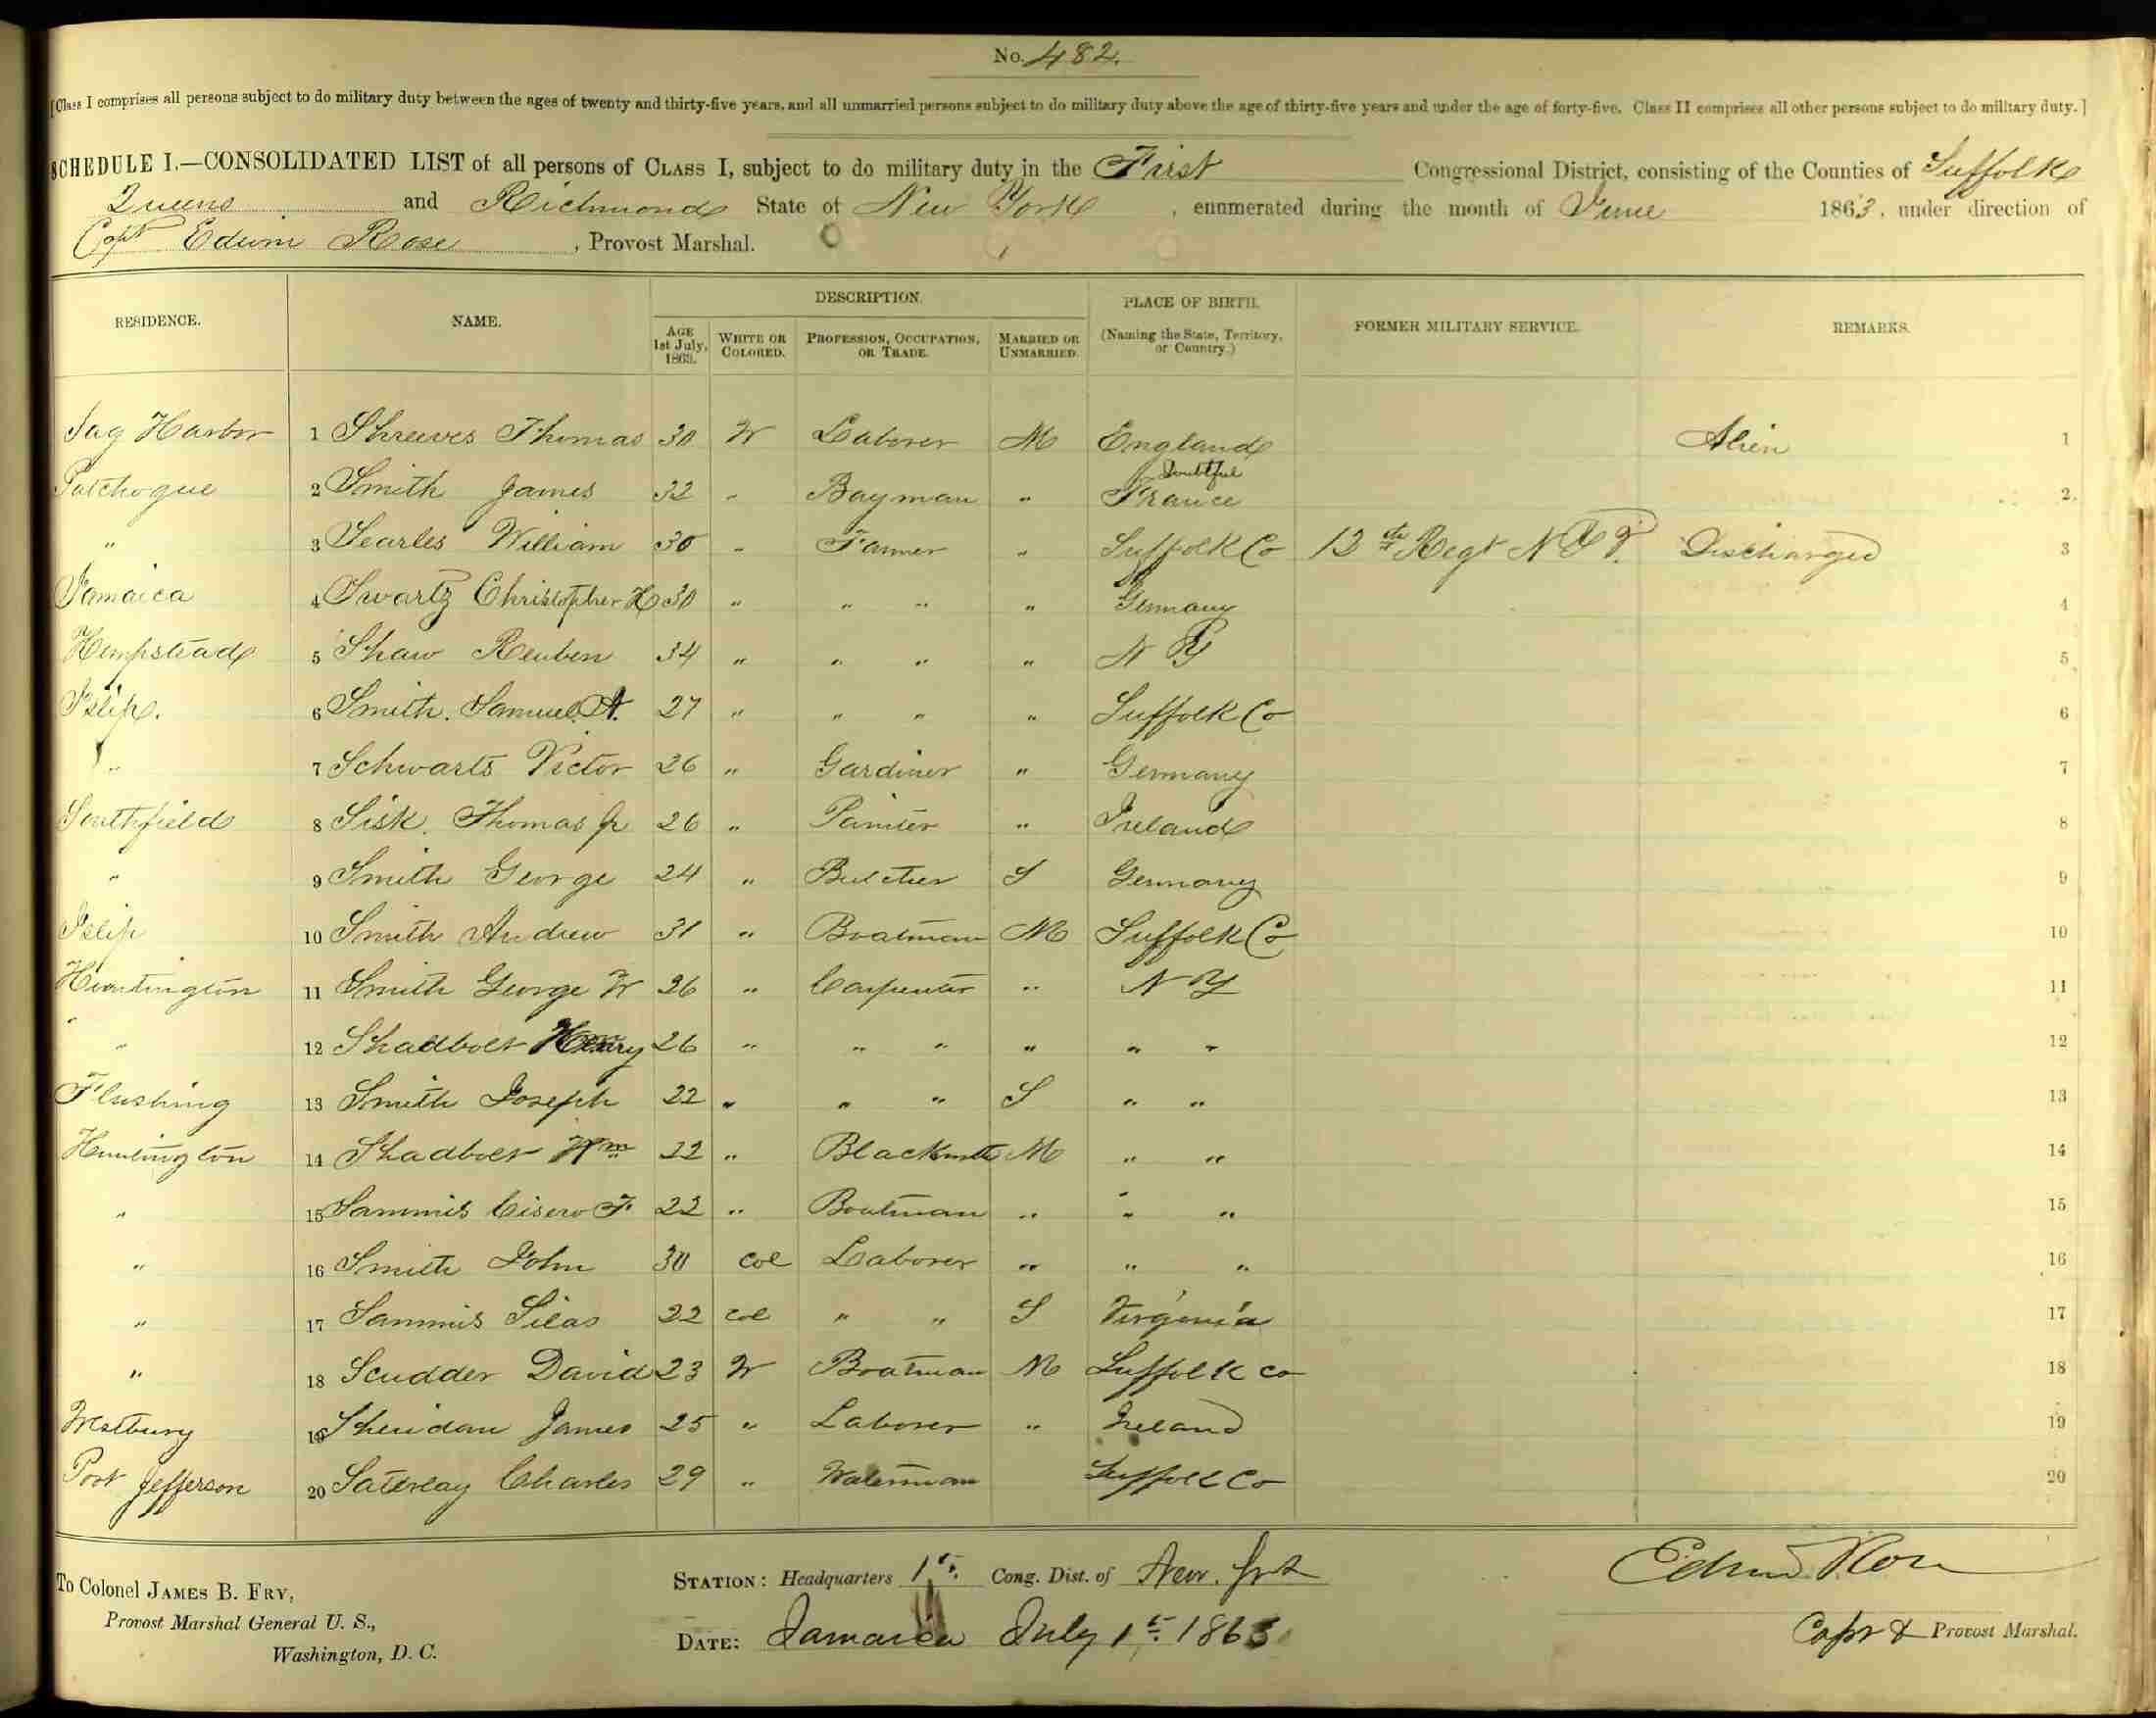 No. 482.
[Class I comprises all persons subject to do military duty between the ages of twenty and thirty-five years, and all unmarried persons subject to do military duty above the age of thirty-five years and under the age of forty-five. Class II comprises all other persons subject to do military duty.]
SCHEDULE I.—CONSOLIDATED LIST of all persons of CLASS I, subject to do military duty in the First Congressional District, consisting of the Counties of Suffolk
Queens and Richmond State of New York, enumerated during the month of June 1863, under direction of
Capt Edwin Rose, Provost Marshal.
RESIDENCE. NAME. DESCRIPTION. PLACE OF BIRTH. (Naming the State, Territory, or Country.) FORMER MILITARY SERVICE. REMARKS.
AGE 1st July, 1863. WHITE OR COLORED. PROFESSION, OCCUPATION, OR TRADE. MARRIED OR UNMARRIED.
Sag Harbor 1 Shreeves Thomas 30 W Laborer M England Alien 1
Doubtful
Patchogue 2 Smith James 32 " Bayman " France 2
" 3 Searles William 30 " Farmer " Suffolk Co 12th Regt N Y V. Discharged 3
Jamaica 4 Swartz Christopher H 30 " " " " Germany 4
Hempstead 5 Shaw Reuben 34 " " " " N Y 5
Islip. 6 Smith. Samuel A. 27 " " " " Suffolk Co 6
" 7 Schwarts Victor 26 " Gardiner " Germany 7
Southfield 8 Sisk. Thomas Jr 26 " Painter " Ireland 8
" 9 Smith George 24 " Butcher S Germany 9
Islip 10 Smith Andrew 31 " Boatman M Suffolk Co 10
Huntington 11 Smith George W 26 " Carpenter " N Y 11
" 12 Shadbolt Henry 26 " " " " " " 12
Flushing 13 Smith Joseph 22 " " " S " " 13
Huntington 14 Shadbolt Wm 22 " Blacksmith M " " 14
" 15 Sammis Cisero F 22 " Boatman " " " 15
" 16 Smith John 30 col Laborer " " " 16
" 17 Sammis Silas 22 col " " S Virginia 17
" 18 Scudder David 23 W Boatman M Suffolk co 18
Westbury 19 Sheridan James 25 " Laborer " Ireland 19
Port Jefferson 20 Saterlay Charles 29 " Waterman Suffolk Co 20
To Colonel JAMES B. FRY,
Provost Marshal General U. S.,
Washington, D. C.
STATION: Headquarters 1st. Cong. Dist. of New York
DATE: Jamaica July 1st 1863
Edwin Rose
Capt & Provost Marshal.